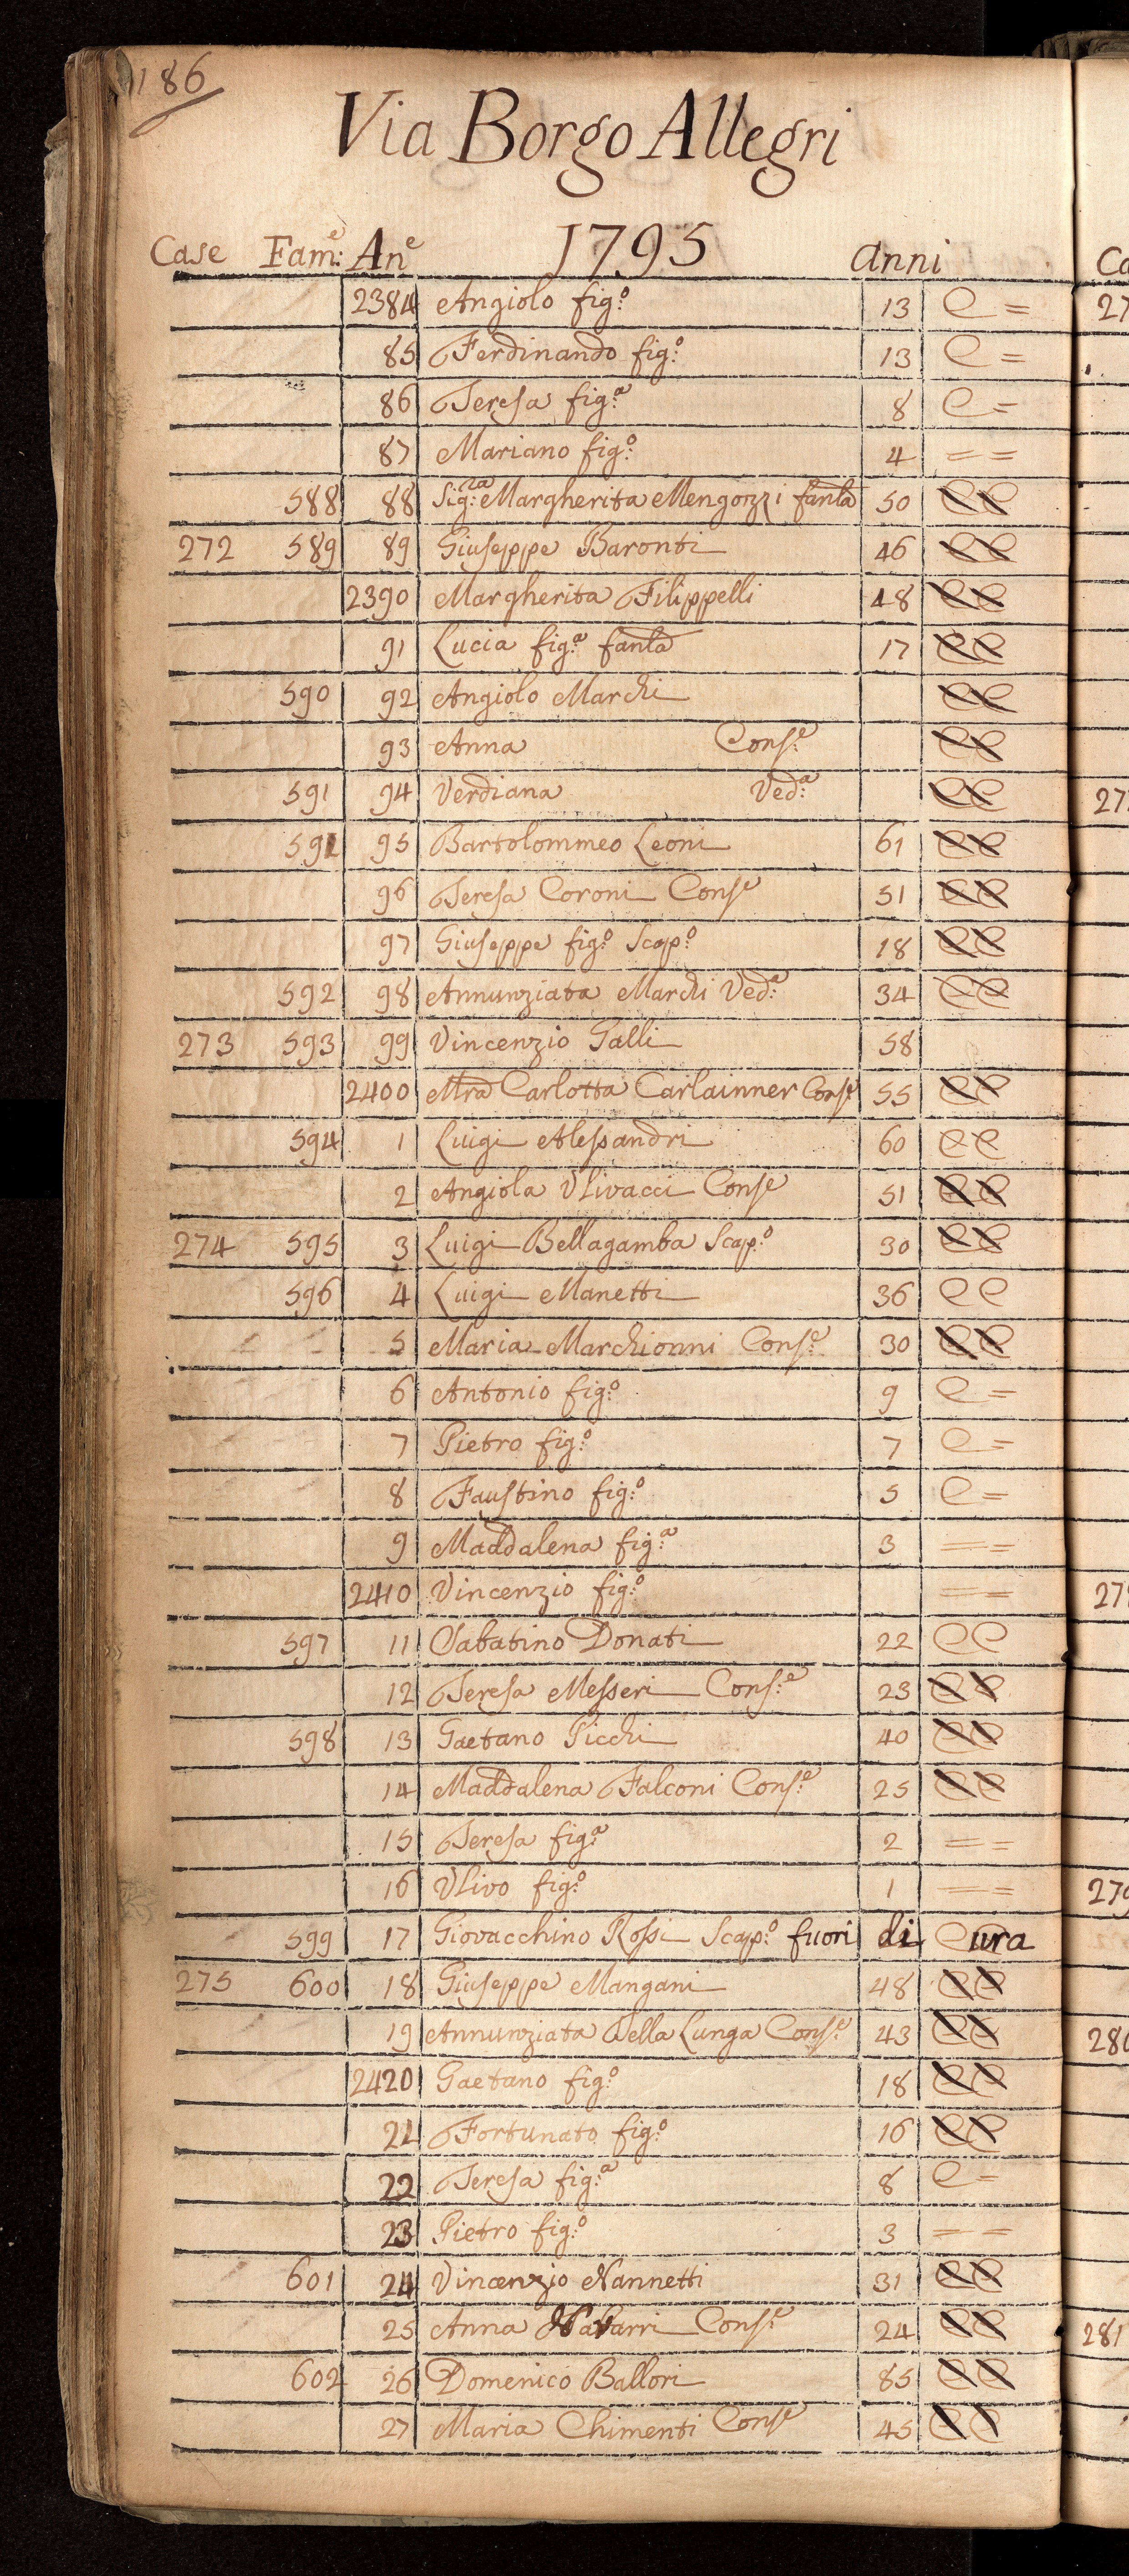 186
Via Borgo Allegri
Case Fam:e An.e 1795 anni
2384 Angiolo fig:o 13 C =
85 Ferdinando fig:o 13 C =
86 Teresa fig:a 8 C =
87 Mariano fig:o 4 = =
588 88 Sig:ra Margherita Mengozzi fanla 50 CC
272 589 89 Giuseppe Baronti 46 CC
2390 Margherita Filippelli 48 CC
91 Lucia fig:a fanla 17 CC
590 92 Angiolo Marchi CC
93 Anna Cons:e CC
591 94 Verdiana Ved:a CC
591 95 Bartolommeo Leoni 61 CC
96 Teresa Coroni Conse 51 CC
97 Giuseppe fig:o Scap:o 18 CC
592 98 Annunziata Marchi Ved:a 34 CC
273 593 99 Vincenzio Galli 58
2400 Mra Carlotta Carlainner Conse 55 CC
594 1 Luigi Alessandri 60 CC
2 Angiola Ulivacci Conse 51 CC
274 595 3 Luigi Bellagamba Scap:o 30 CC
596 4 Luigi Manetti 36 CC
5 Maria Marchionni Cons:e 30 CC
6 Antonio fig:o 9 C =
7 Pietro fig:o 7 C =
8 Faustino fig:o 5 C =
9 Maddalena fig:a 3 = =
2410 Vincenzio fig:o = =
597 11 Sabatino Donati 22 CC
12 Teresa Messeri Cons:e 23 CC
598 13 Gaetano Picchi 40 CC
14 Maddalena Falconi Cons:e 25 CC
15 Teresa fig:a 2 = =
16 Ulivo fig:o 1 = =
599 17 Giovacchino Rossi Scap:o fuori di Cura
275 600 18 Giuseppe Mangani 48 CC
19 Annunziata Della Lunga Cons:e 43 CC
2420 Gaetano fig:o 18 CC
21 Fortunato fig:o 16 CC
22 Teresa fig:a 8 C =
23 Pietro fig:o 3 = =
601 24 Vincenzio Nannetti 31 CC
25 Anna Navarri Cons:e 24 CC
602 26 Domenico Ballori 85 CC
27 Maria Chimenti Conse 45 CC